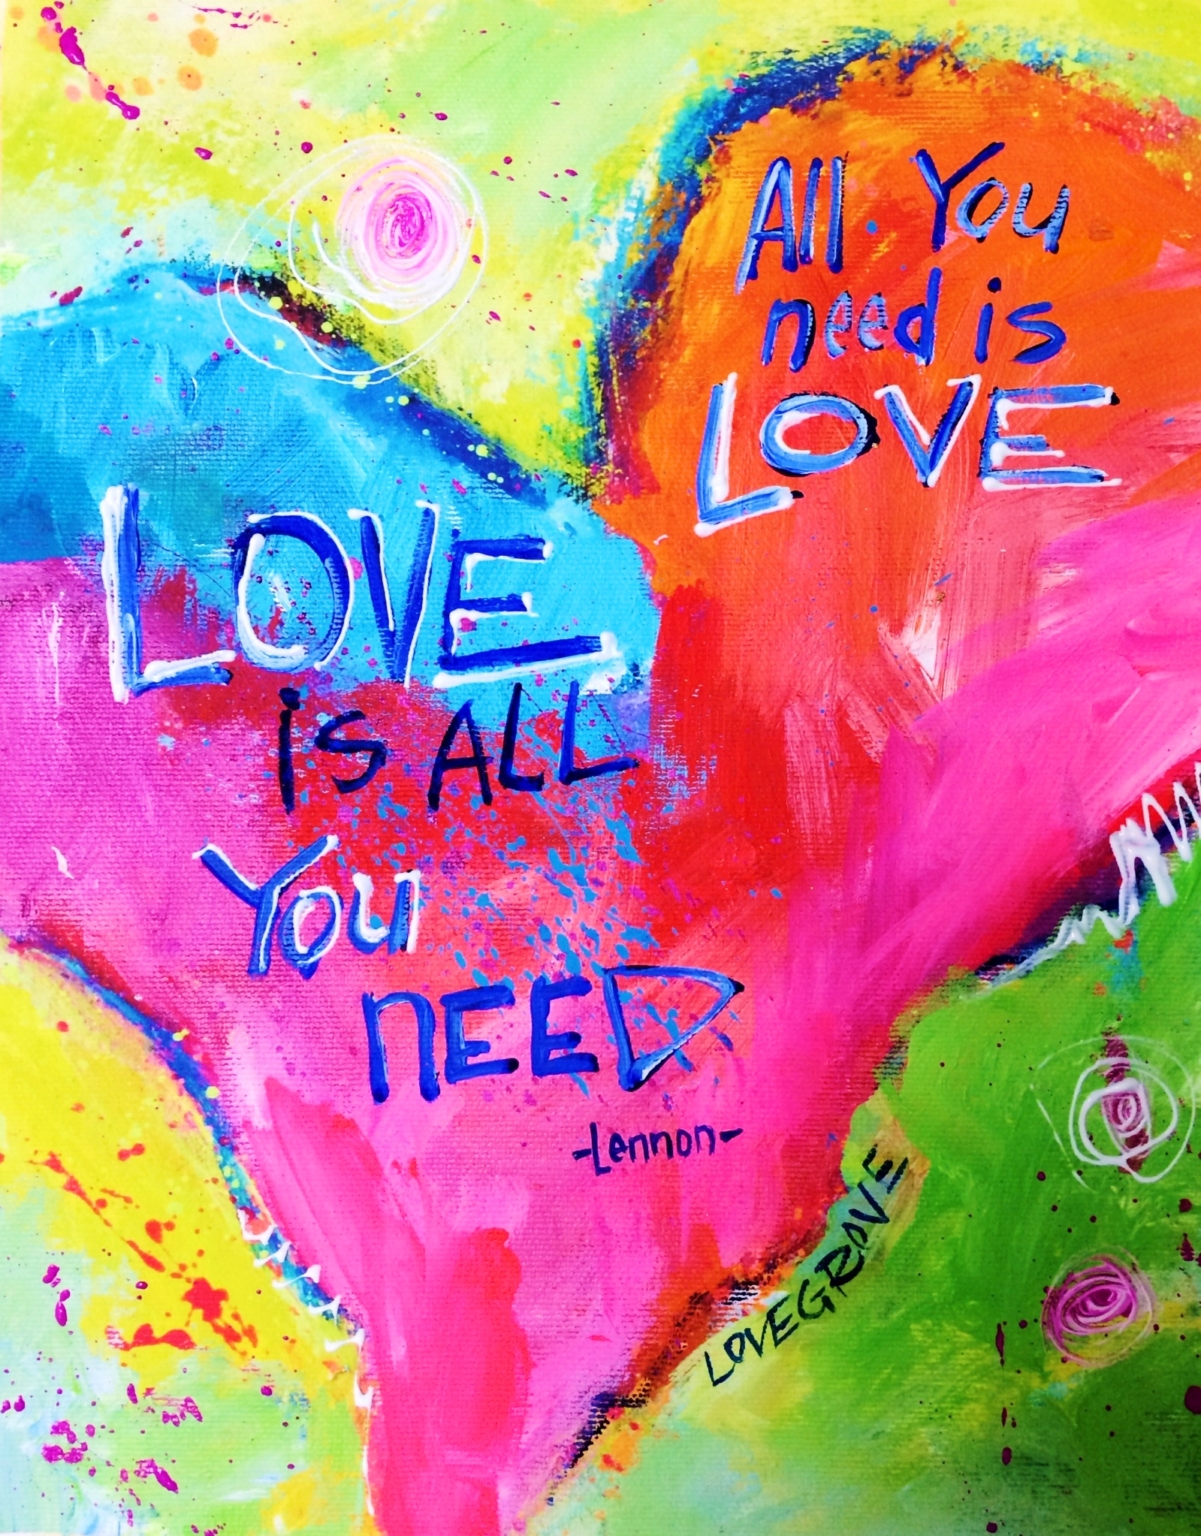 All You
need is
LOVE
LOVE
is ALL
You
NEED
-Lennon-
LOVEGROVE